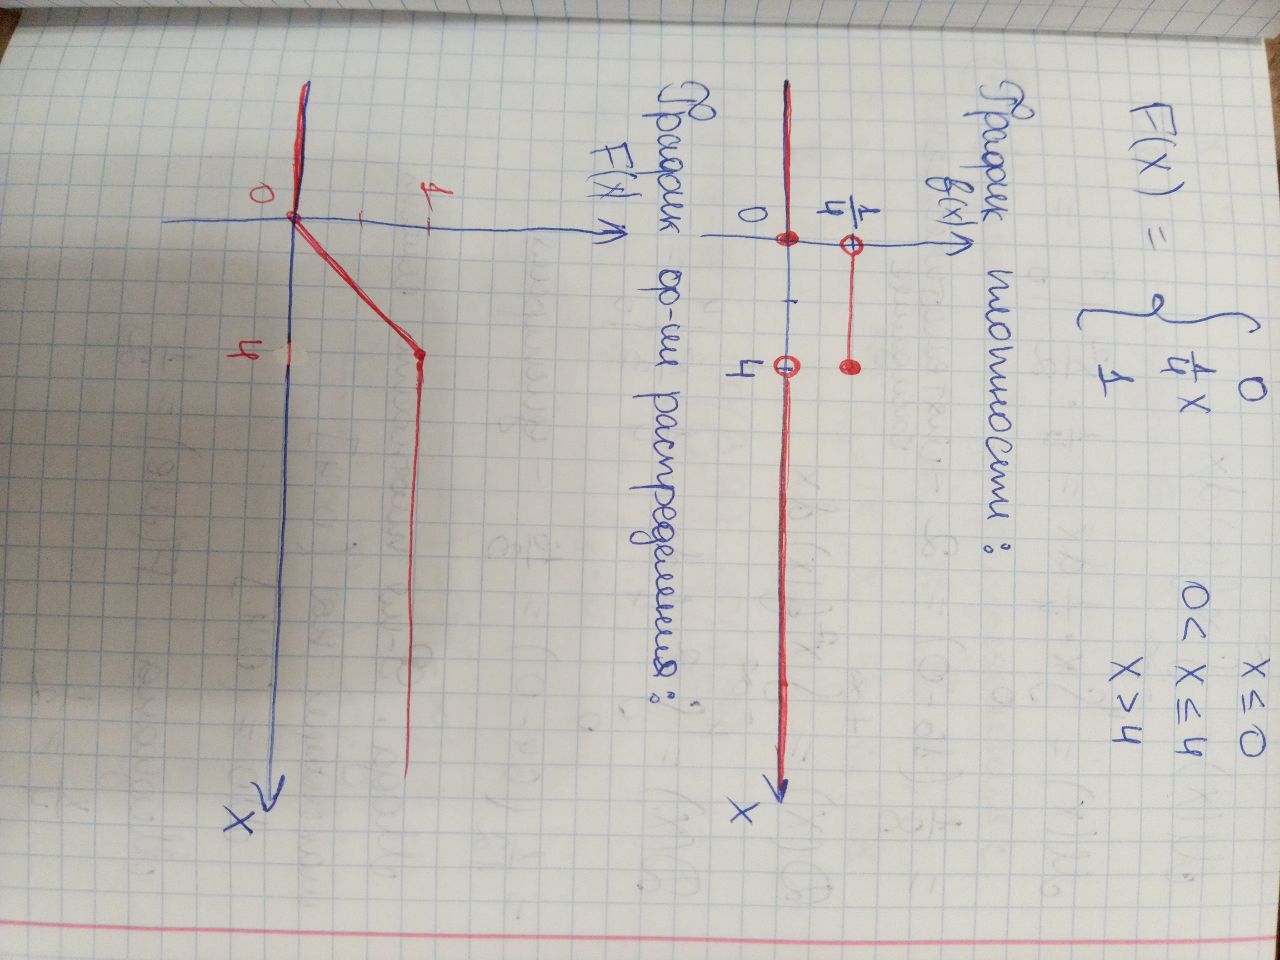 F(x) = { 0 x ≤ 0
1/4 x 0 < x ≤ 4
1 x > 4
График плотности:
f(x)
1/4
0 4 x
График ф-ии распределения:
F(x)
1
0 4 x